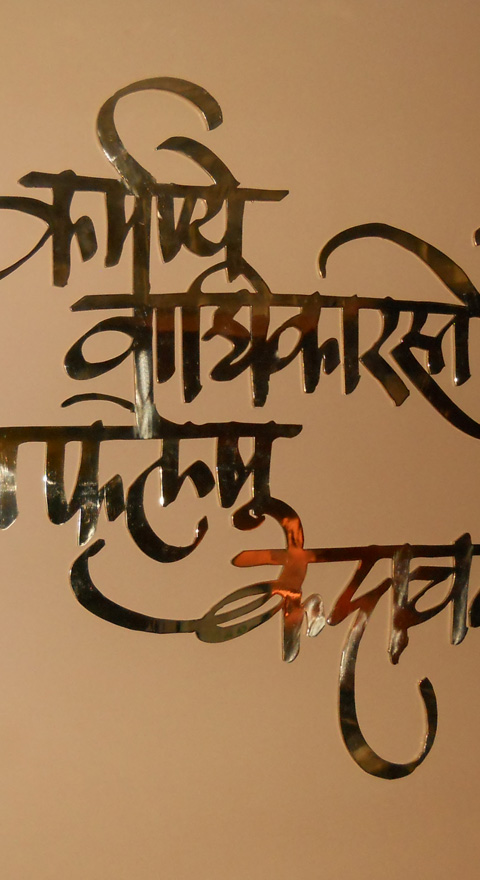 कर्मण्ये
वाधिकारस्ते
फलेषु
कदाच